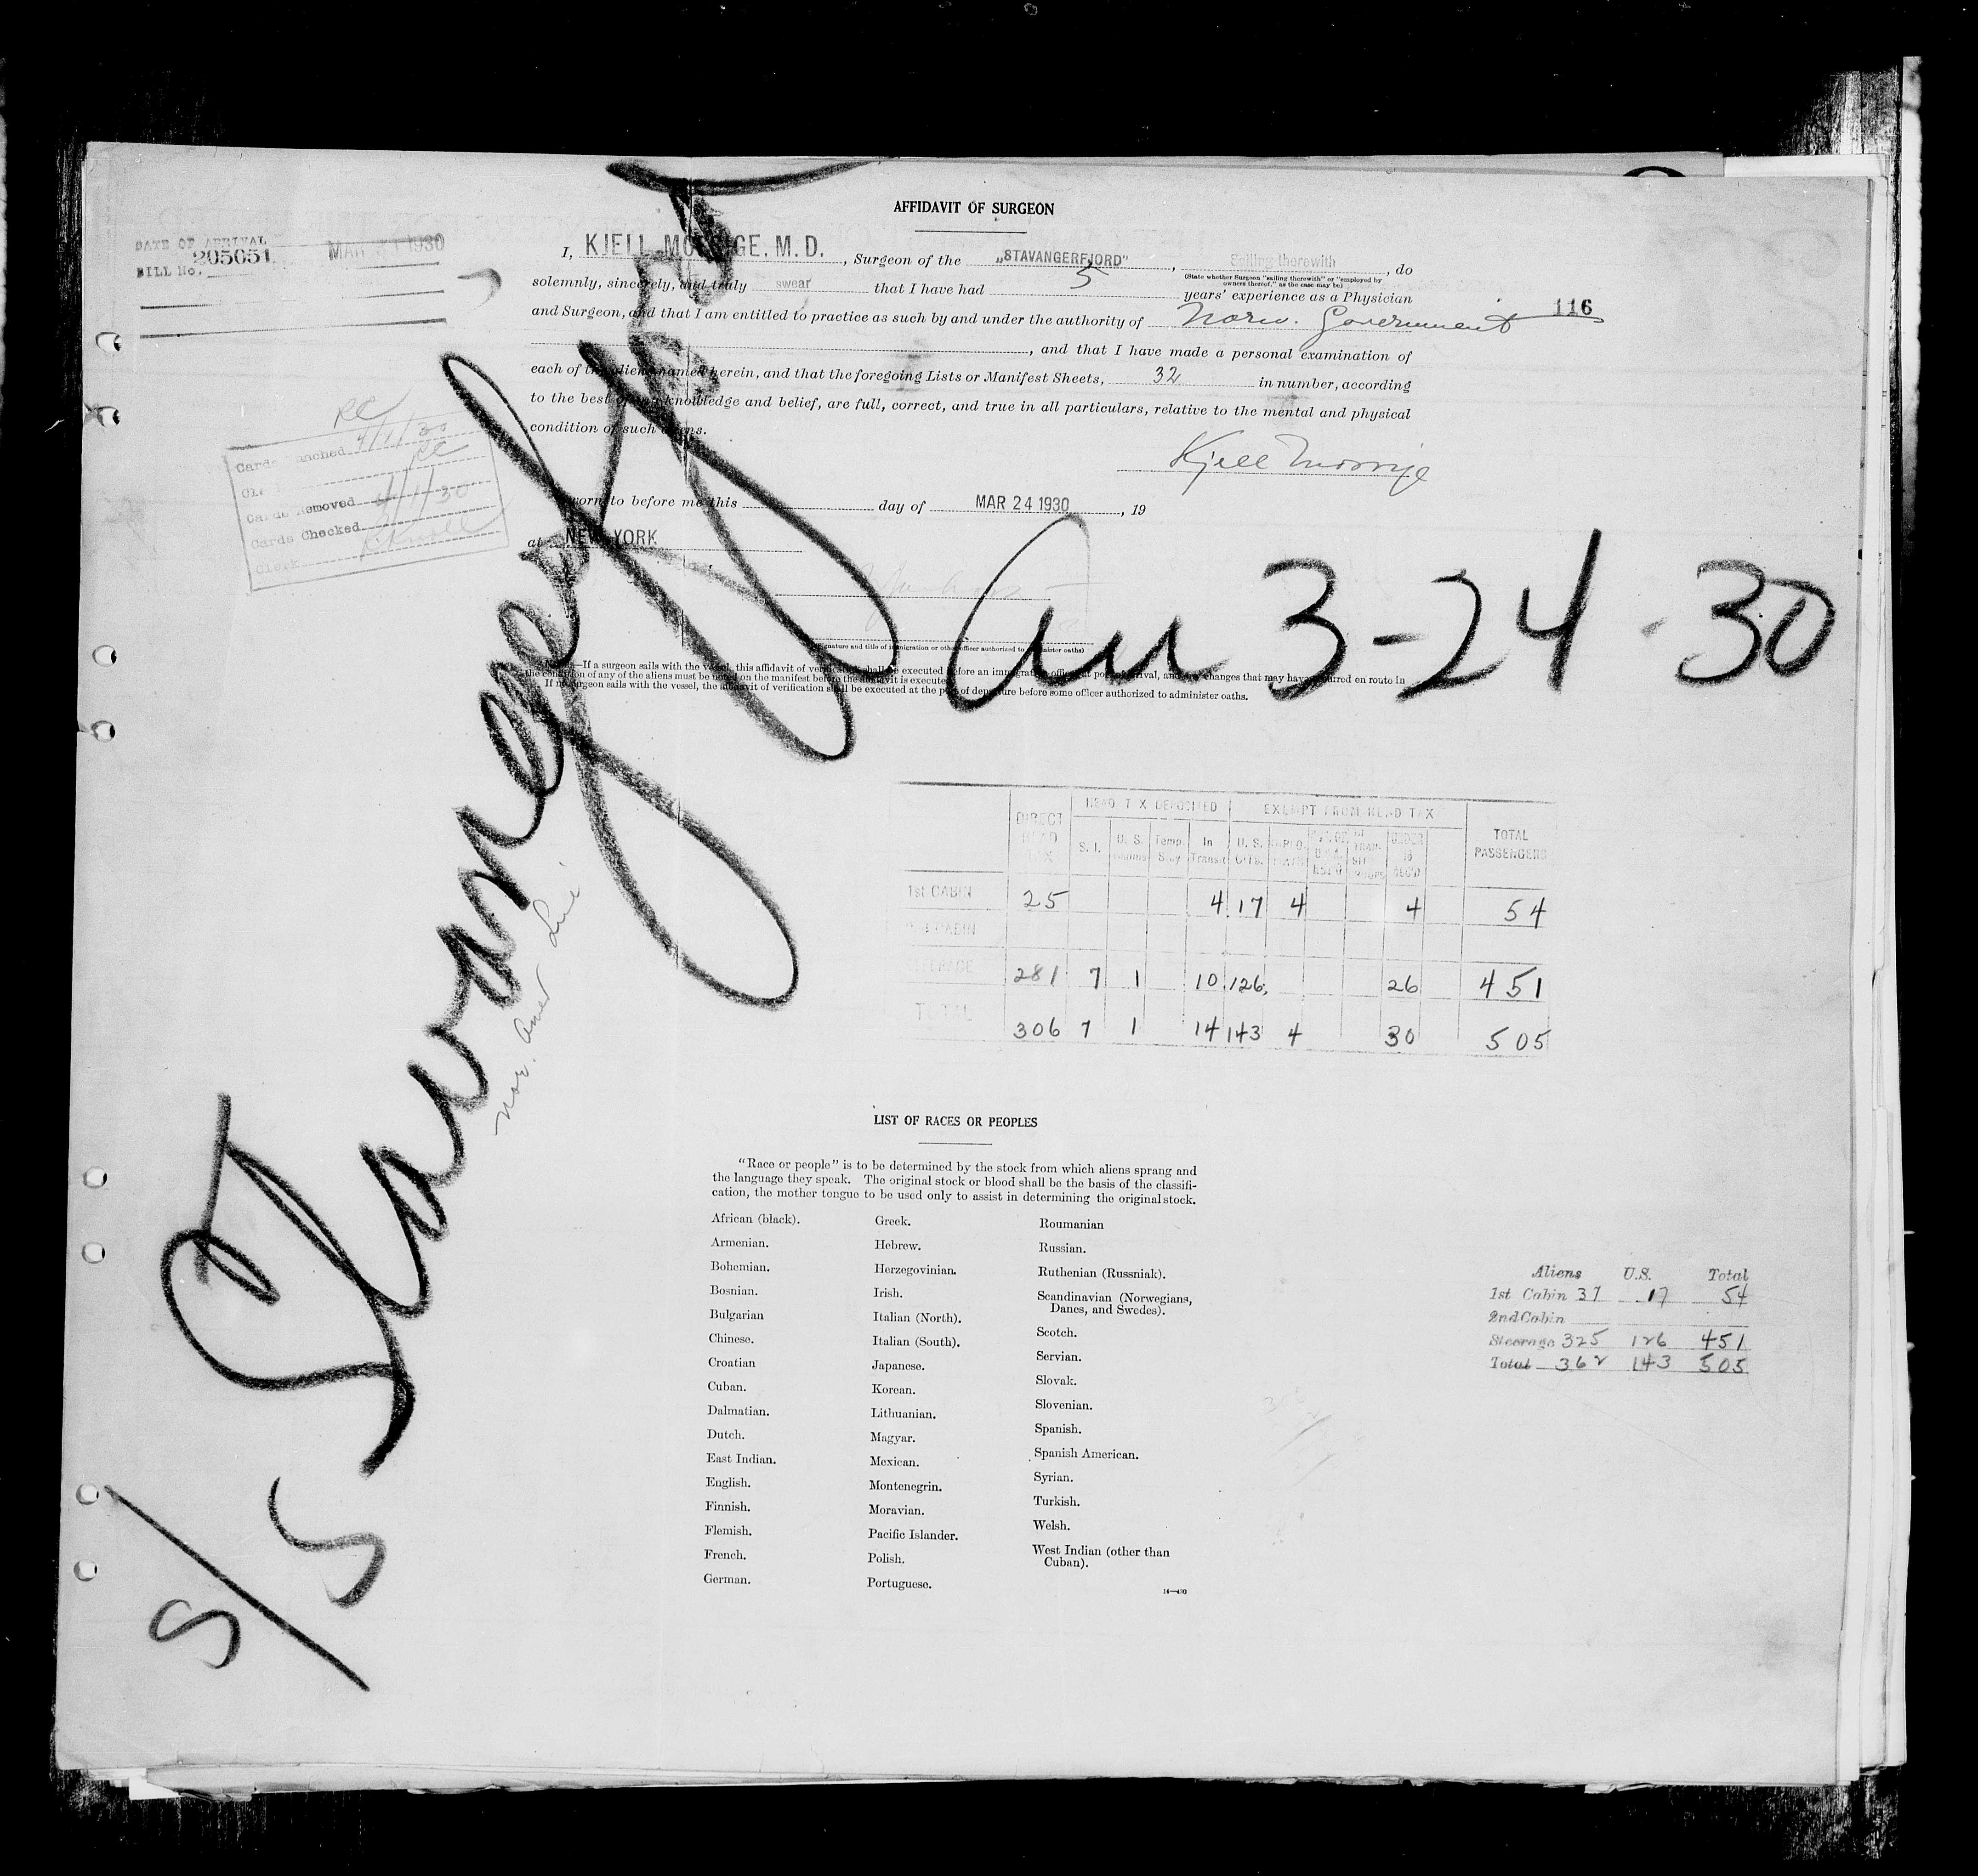 AFFIDAVIT OF SURGEON
DATE OF ARRIVAL MAR 1930
205051
BILL No.
I, KJELL M. D., Surgeon of the „STAVANGERFJORD", Sailing therewith, do
(State whether Surgeon "sailing therewith" or "employed by owners thereof," as the case may be)
solemnly, sincerely, and truly swear that I have had 5 years' experience as a Physician
116
and Surgeon, and that I am entitled to practice as such by and under the authority of Norw. Government
, and that I have made a personal examination of
each of the aliens named herein, and that the foregoing Lists or Manifest Sheets, 32 in number, according
to the best of my knowledge and belief, are full, correct, and true in all particulars, relative to the mental and physical
condition of such aliens.
Kjell
Sworn to before me this day of MAR 24 1930, 19
at NEW YORK
RC
Cards Punched 4/1/30
RC
Cards Removed 4/1/30
Cards Checked
Clerk
(Signature and title of immigration or other officer authorized to administer oaths)
NOTE.—If a surgeon sails with the vessel, this affidavit of verification shall be executed before an immigration officer at port of arrival, and any changes that may have occurred en route in
the condition of any of the aliens must be noted on the manifest before the affidavit is executed.
If no surgeon sails with the vessel, the affidavit of verification shall be executed at the port of departure before some officer authorized to administer oaths.
S/S Stavangerfjord
Arr 3-24-30
Nor. Amer Line
HEAD TAX DEPOSITED EXEMPT FROM HEAD TAX
DIRECT HEAD TAX S. I. U. S. Temp. Stay In Transit U. S. Citz. UNDER 16 TOTAL PASSENGERS
1st CABIN 25 4 17 4 4 54
2nd CABIN
STEERAGE 281 7 1 10 126 26 451
TOTAL 306 7 1 14 143 4 30 505
LIST OF RACES OR PEOPLES
"Race or people" is to be determined by the stock from which aliens sprang and
the language they speak. The original stock or blood shall be the basis of the classifi-
cation, the mother tongue to be used only to assist in determining the original stock.
African (black).
Armenian.
Bohemian.
Bosnian.
Bulgarian
Chinese.
Croatian
Cuban.
Dalmatian.
Dutch.
East Indian.
English.
Finnish.
Flemish.
French.
German.
Greek.
Hebrew.
Herzegovinian.
Irish.
Italian (North).
Italian (South).
Japanese.
Korean.
Lithuanian.
Magyar.
Mexican.
Montenegrin.
Moravian.
Pacific Islander.
Polish.
Portuguese.
Roumanian
Russian.
Ruthenian (Russniak).
Scandinavian (Norwegians,
Danes, and Swedes).
Scotch.
Servian.
Slovak.
Slovenian.
Spanish.
Spanish American.
Syrian.
Turkish.
Welsh.
West Indian (other than
Cuban).
14—430
Aliens U.S. Total
1st Cabin 37 17 54
2nd Cabin
Steerage 325 126 451
Total 362 143 505